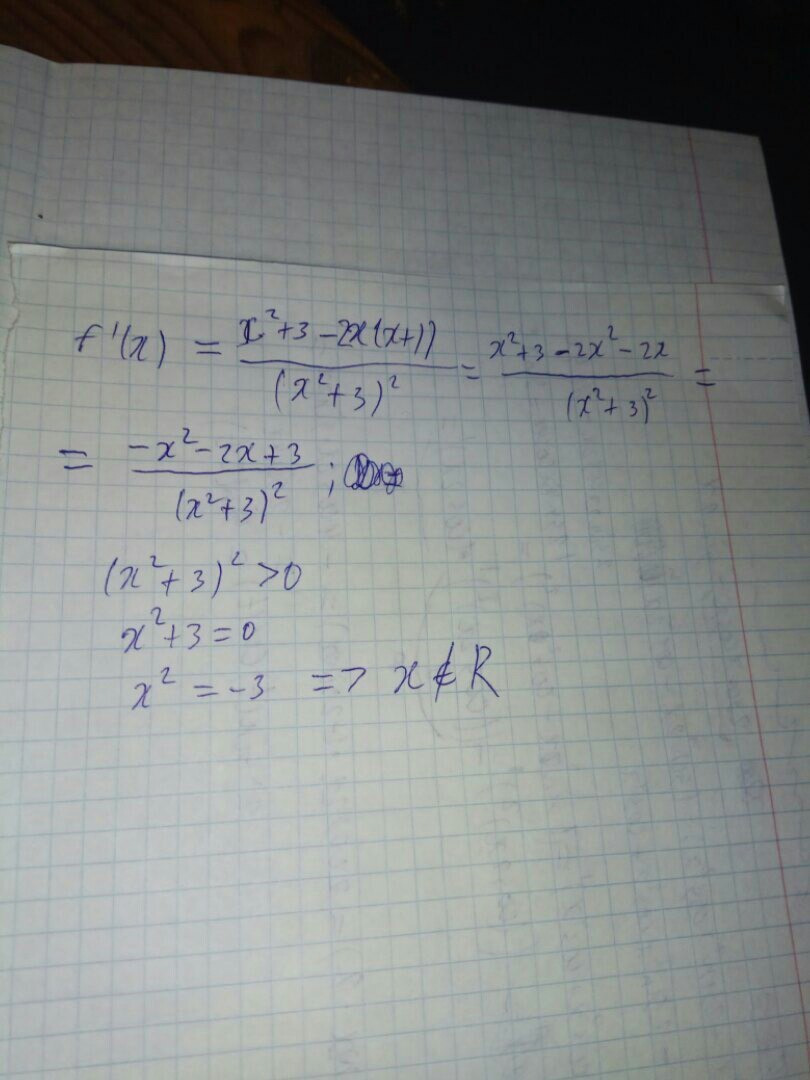 f'(x) = (x²+3-2x(x+1))/(x²+3)² = (x²+3-2x²-2x)/(x²+3)² =
= (-x²-2x+3)/(x²+3)² ;
(x²+3)² >0
x²+3=0
x² = -3 => x ∉ R